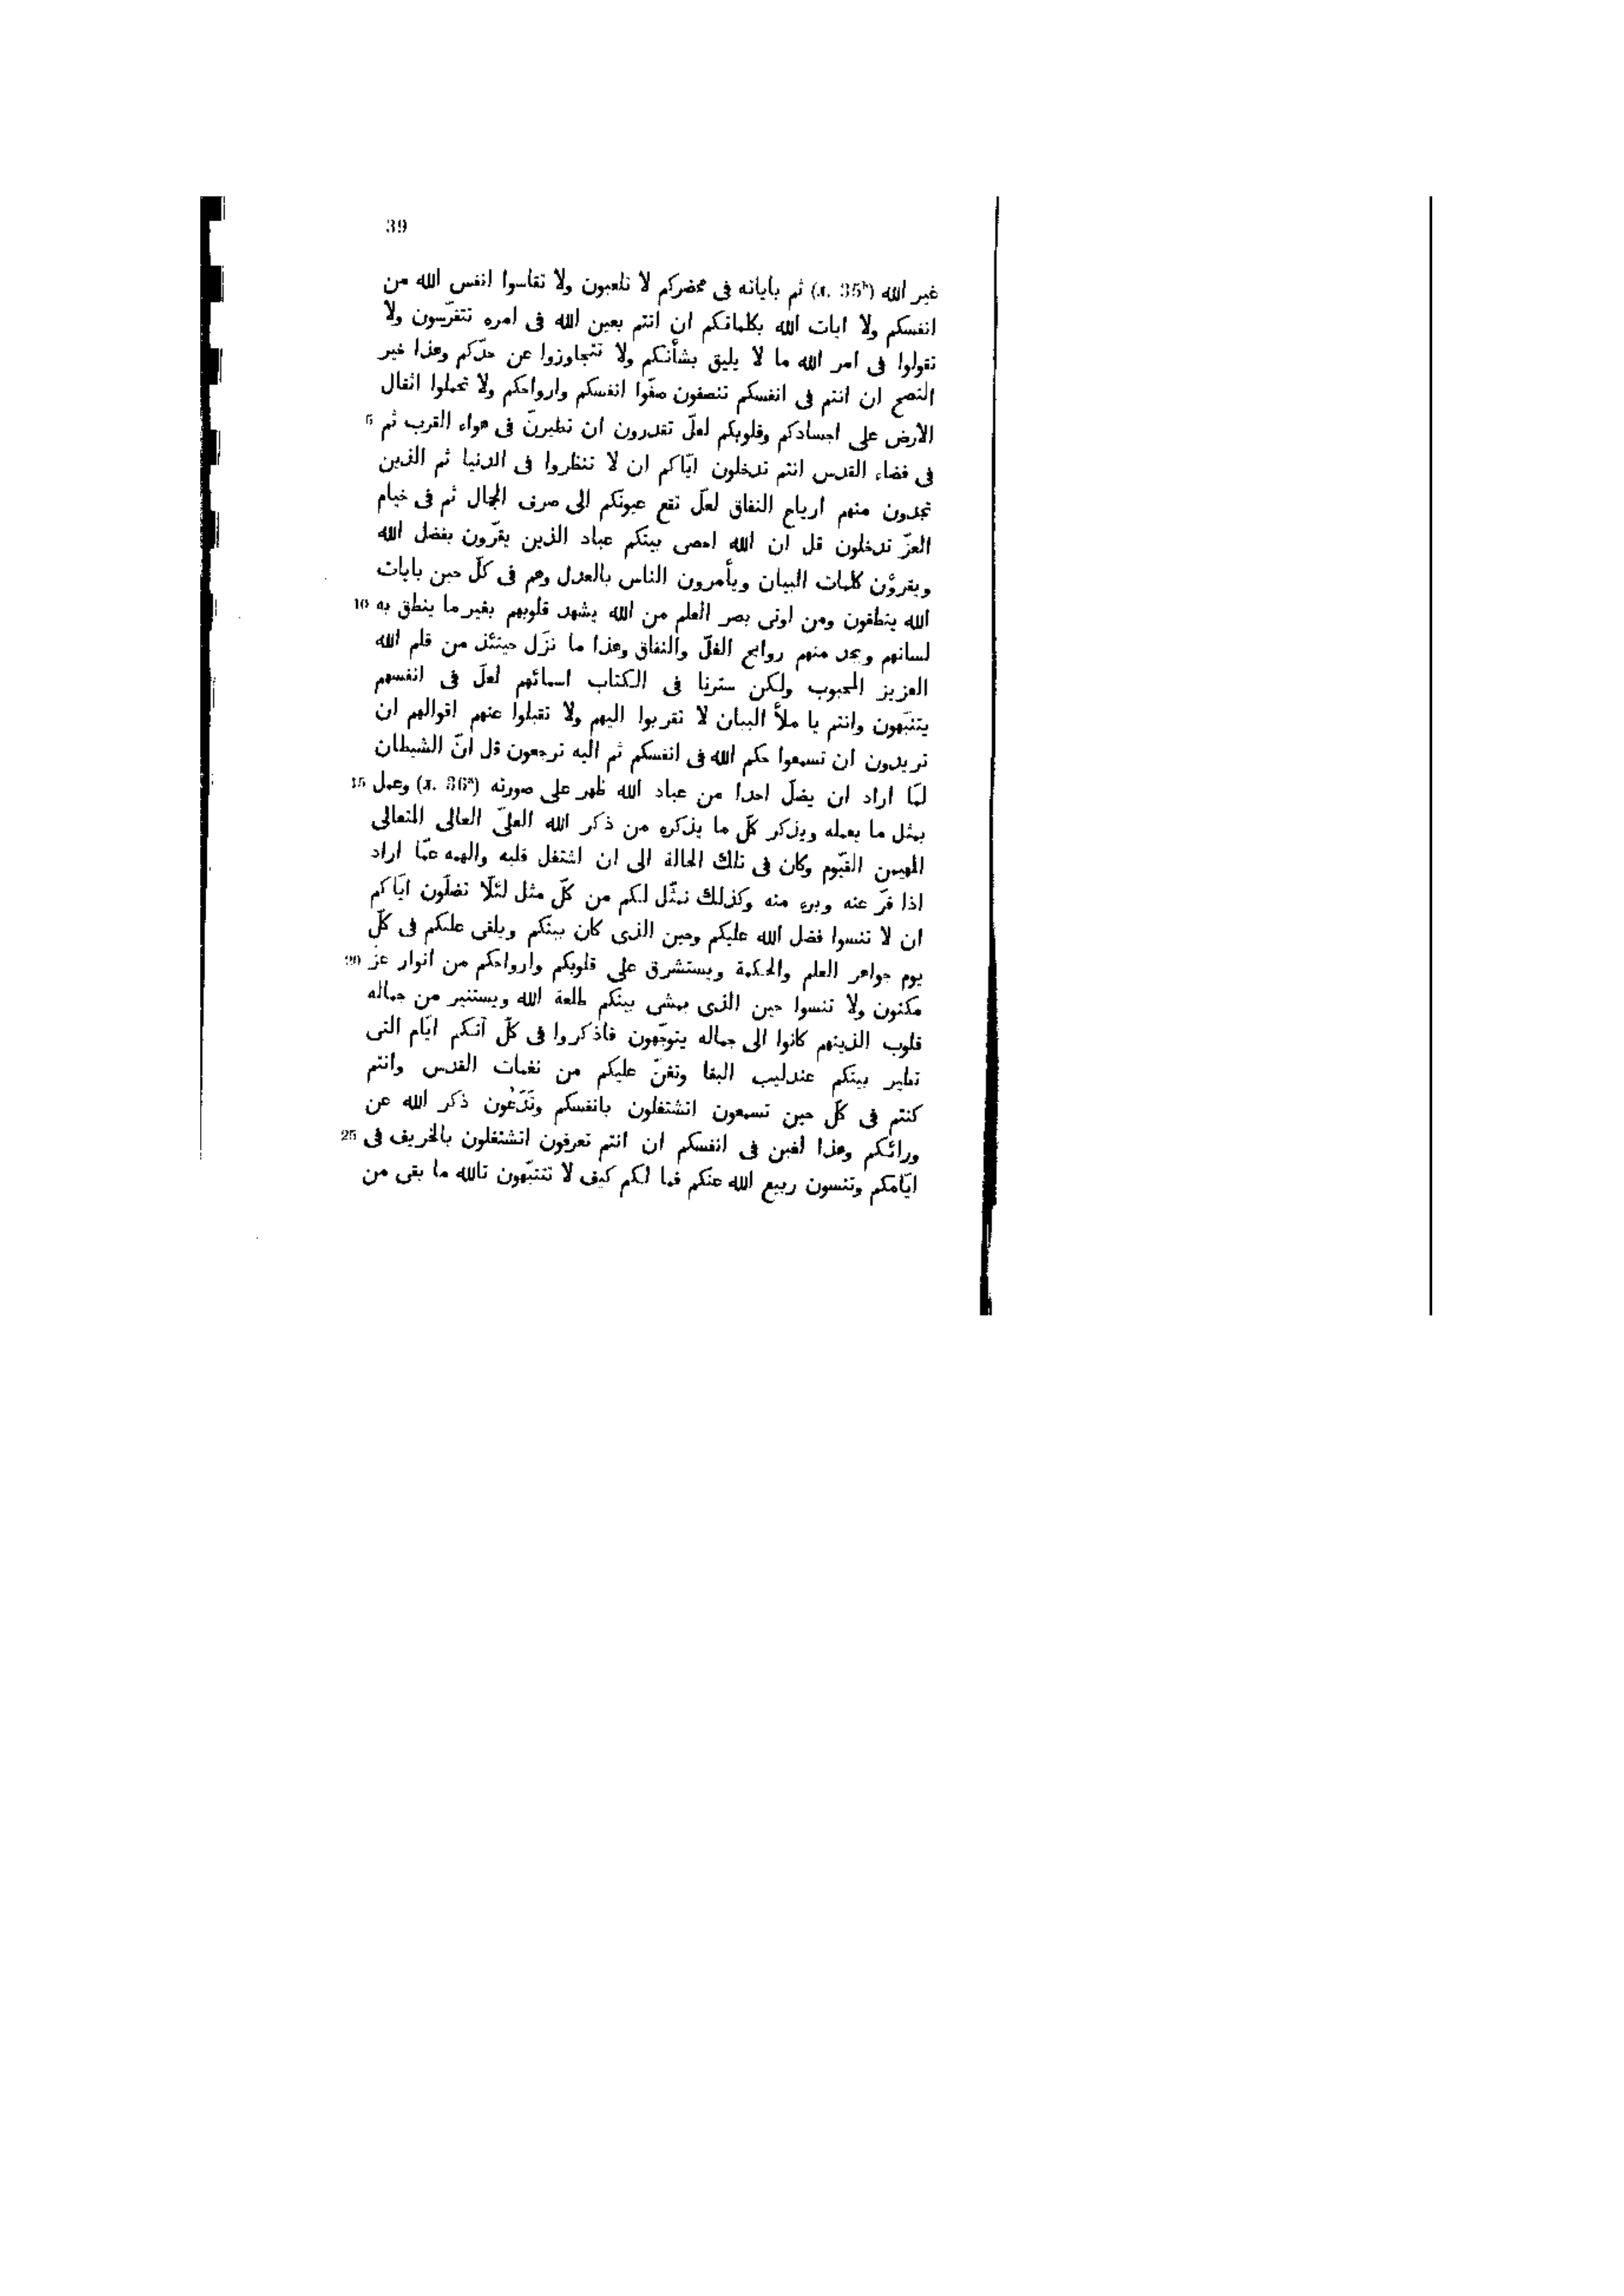 39
غير الله (л. 35ᵇ) ثم باياته فى محضركم لا تلعبون ولا تقاسوا انفس الله من
انفسكم ولا ايات الله بكلماتكم ان انتم بعين الله فى امره تتفرّسون ولا
تقولوا فى امر الله ما لا يليق بشأنكم ولا تتجاوزوا عن حدّكم وهذا خير
النصح ان انتم فى انفسكم تنصفون صفّوا انفسكم وارواحكم ولا تحملوا اثقال
الارض على اجسادكم وقلوبكم لعلّ تقدرون ان تطيرنّ فى هواء القرب ثم 5
فى فضاء القدس انتم تدخلون ايّاكم ان لا تنظروا فى الدنيا ثم الذين
تجدون منهم ارياح النفاق لعلّ تقع عيونكم الى صرف الجمال ثم فى خيام
العزّ تدخلون قل ان الله احصى بينكم عباد الذين يقرّون بفضل الله
ويقروُن كلمات البيان ويأمرون الناس بالعدل وهم فى كلّ حين بايات
الله ينطقون ومن اوتى بصر العلم من الله يشهد قلوبهم بغير ما ينطق به 10
لسانهم ويجد منهم روايح الغلّ والنفاق وهذا ما نزّل حينئذ من قلم الله
العزيز المحبوب ولكن سترنا فى الكتاب اسمائهم لعلّ فى انفسهم
يتنبّهون وانتم يا ملأ البيان لا تقربوا اليهم ولا تقبلوا عنهم اقوالهم ان
تريدون ان تسمعوا حكم الله فى انفسكم ثم اليه ترجعون قل انّ الشيطان
لمّا اراد ان يضلّ احدا من عباد الله ظهر على صورته (л. 36ᵃ) وعمل 15
بمثل ما يعمله ويذكر كلّ ما يذكره من ذكر الله العلىّ العالى المتعالى
المهيمن القيّوم وكان فى تلك الحالة الى ان اشتغل قلبه والهمه عمّا اراد
اذا فرّ عنه وبرء منه وكذلك نمثّل لكم من كلّ مثل لئلّا تضلّون ايّاكم
ان لا تنسوا فضل الله عليكم وحين الذى كان بينكم ويلقى عليكم فى كلّ
يوم جواهر العلم والحكمة ويستشرق على قلوبكم وارواحكم من انوار عزّ 20
مكنون ولا تنسوا حين الذى يمشى بينكم طلعة الله ويستنير من جماله
قلوب الذينهم كانوا الى جماله يتوجّهون فاذكروا فى كلّ آنكم ايّام التى
تطير بينكم عندليب البقا وتغنّ عليكم من نغمات القدس وانتم
كنتم فى كلّ حين تسمعون اتشتغلون بانفسكم وتَدَعُون ذكر الله عن
ورائكم وهذا لغبن فى انفسكم ان انتم تعرفون اتشتغلون بالخريف فى 25
ايّامكم وتنسون ربيع الله عنكم فما لكم كيف لا تتنبّهون تالله ما بقى من